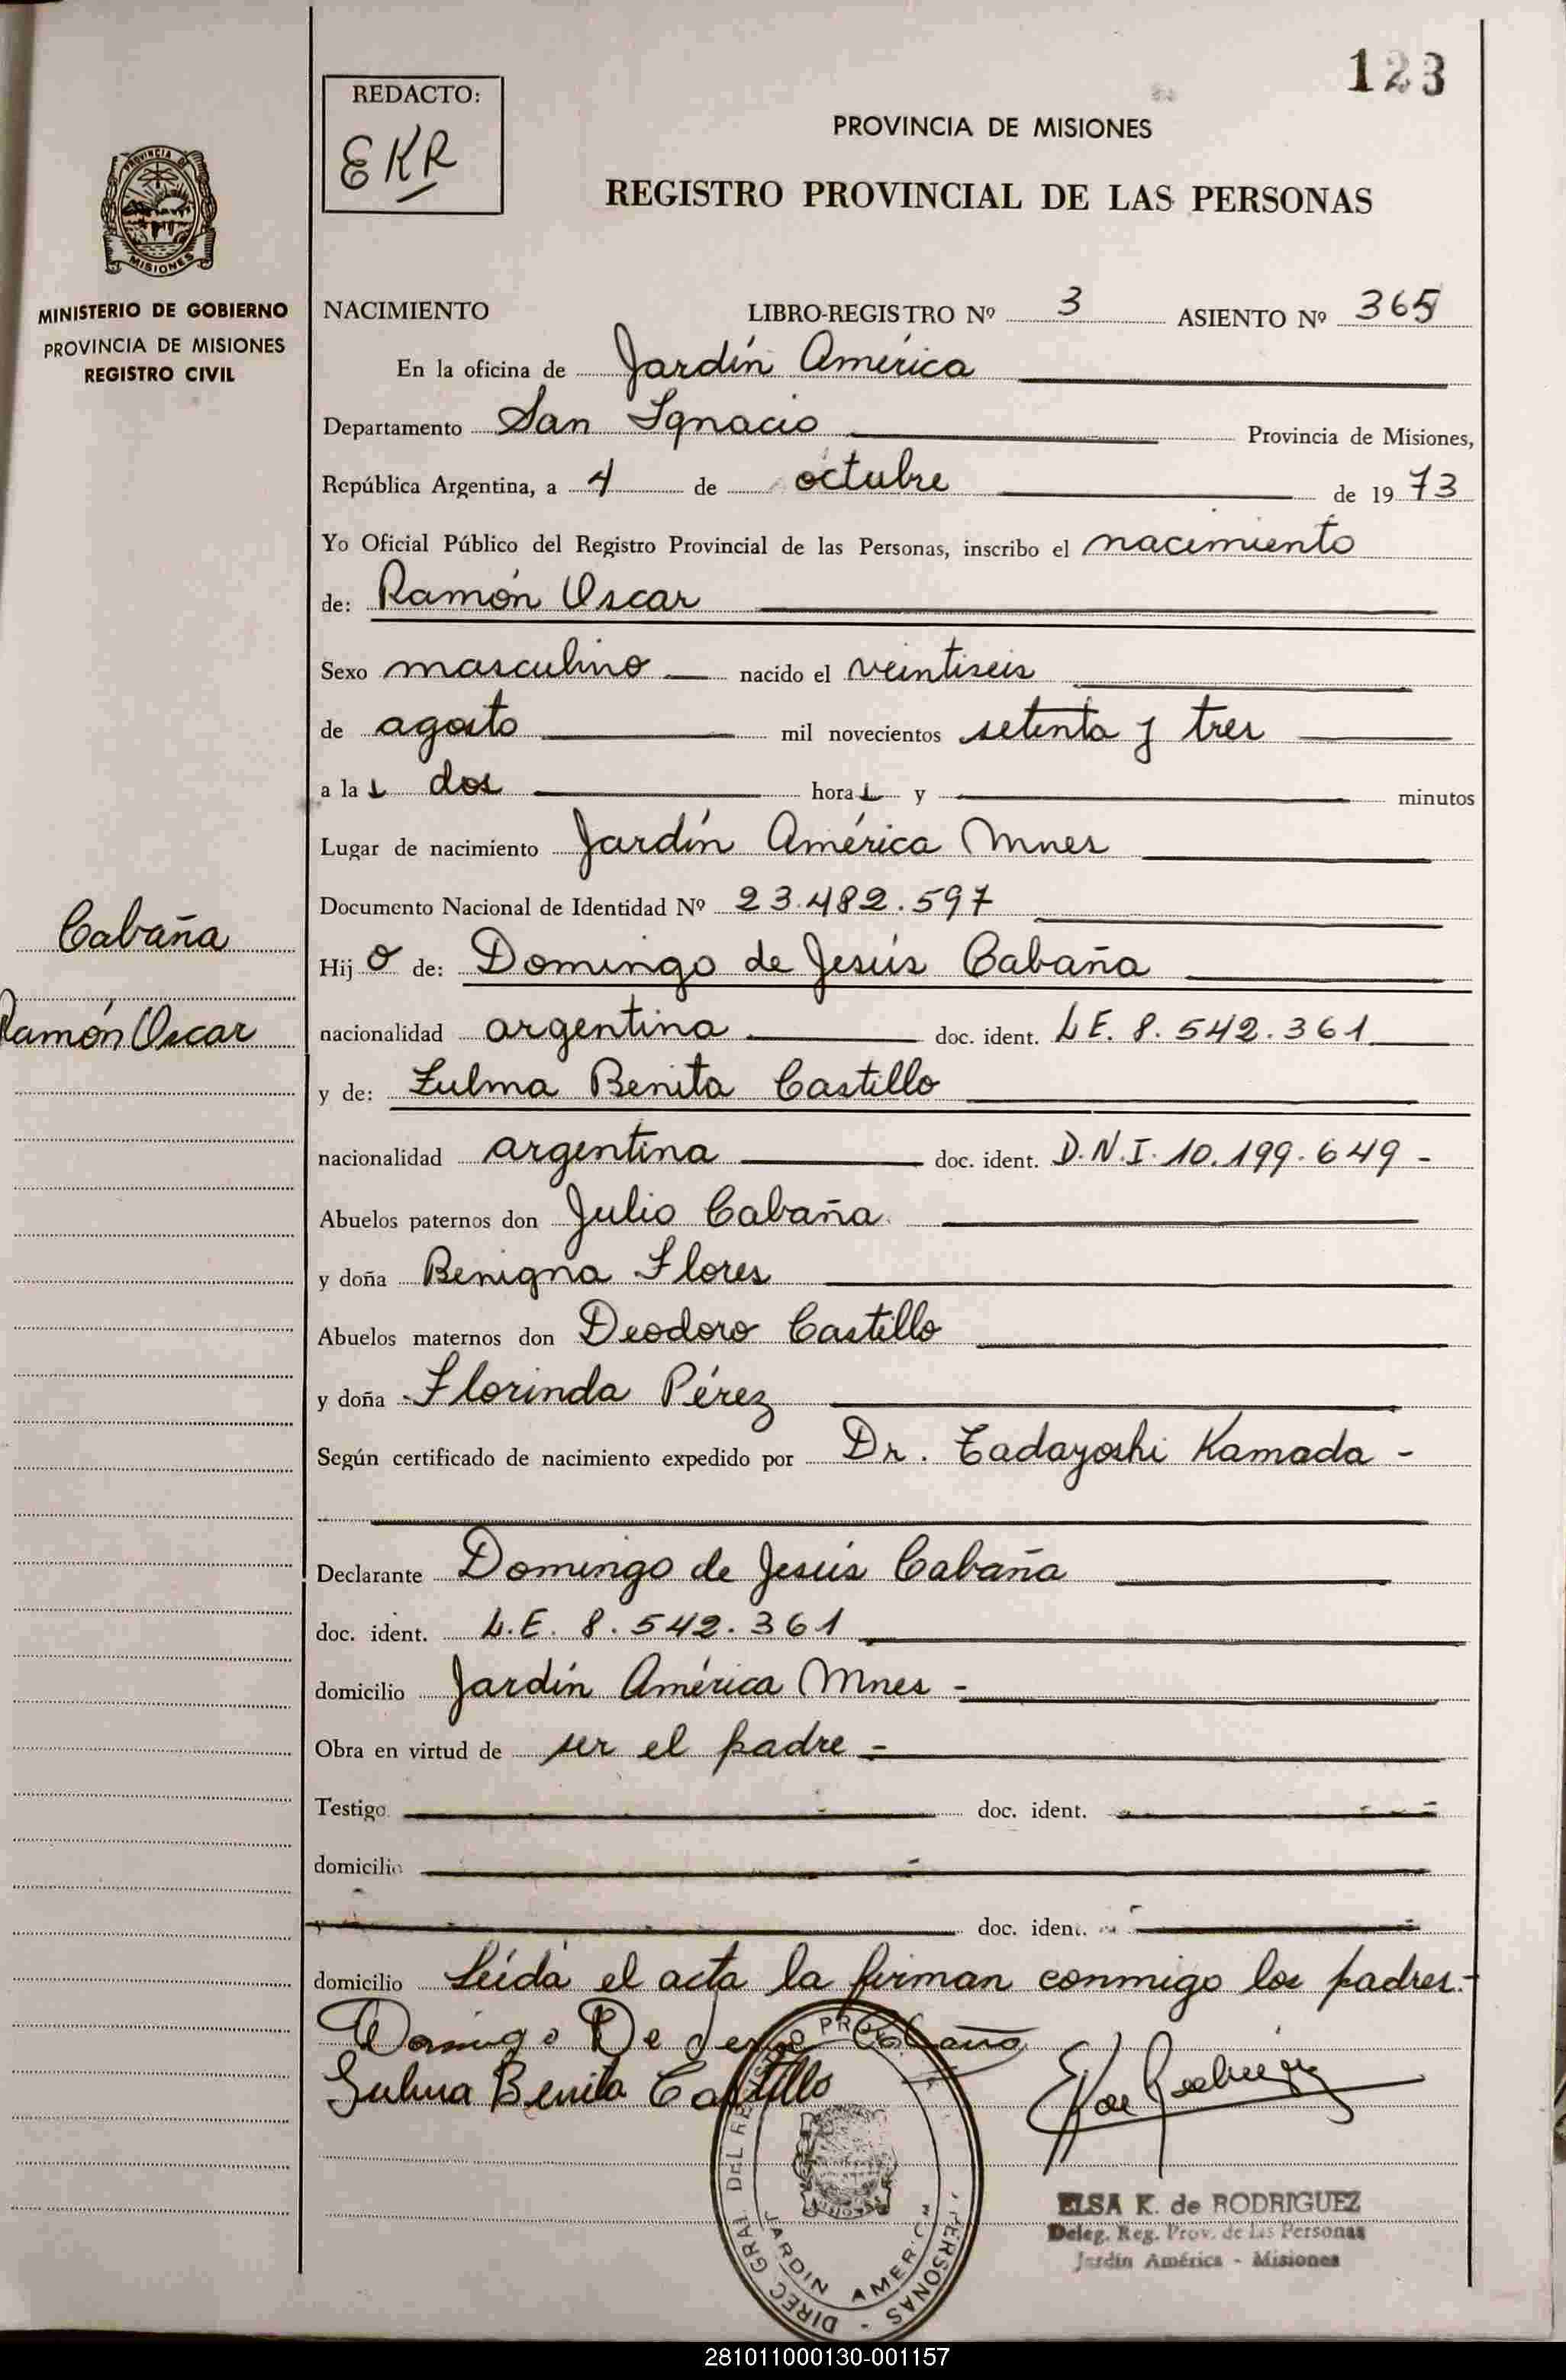 123
REDACTO:
EKR
PROVINCIA DE MISIONES
REGISTRO PROVINCIAL DE LAS PERSONAS
PROVINCIA DE
MISIONES
MINISTERIO DE GOBIERNO
PROVINCIA DE MISIONES
REGISTRO CIVIL
NACIMIENTO LIBRO-REGISTRO Nº 3 ASIENTO Nº 365
En la oficina de Jardín América
Departamento San Ignacio Provincia de Misiones,
República Argentina, a 4 de octubre de 1973
Yo Oficial Público del Registro Provincial de las Personas, inscribo el nacimiento
de: Ramón Oscar
Sexo masculino nacido el veintiseis
de agosto mil novecientos setenta y tres
a las dos horas y minutos
Lugar de nacimiento Jardín América Mnes
Documento Nacional de Identidad Nº 23.482.597
Cabaña
Ramón Oscar
Hijo de: Domingo de Jesús Cabaña
nacionalidad argentina doc. ident. L.E. 8.542.361
y de: Zulma Benita Castillo
nacionalidad argentina doc. ident. D.N.I. 10.199.649 -
Abuelos paternos don Julio Cabaña
y doña Benigna Flores
Abuelos maternos don Deodoro Castillo
y doña Florinda Pérez
Según certificado de nacimiento expedido por Dr. Tadayoshi Kamada -
Declarante Domingo de Jesús Cabaña
doc. ident. L.E. 8.542.361
domicilio Jardín América Mnes -
Obra en virtud de ser el padre -
Testigo doc. ident.
domicilio
y doc. ident.
domicilio Leída el acta la firman conmigo los padres.-
Domingo De Jesus Cabaña
Sulma Benita Castillo
DIREC. GRAL. DEL REGISTRO PROV. PERSONAS -
JARDIN AMERICA
ELSA K. de RODRIGUEZ
Deleg. Reg. Prov. de las Personas
Jardín América - Misiones
281011000130-001157